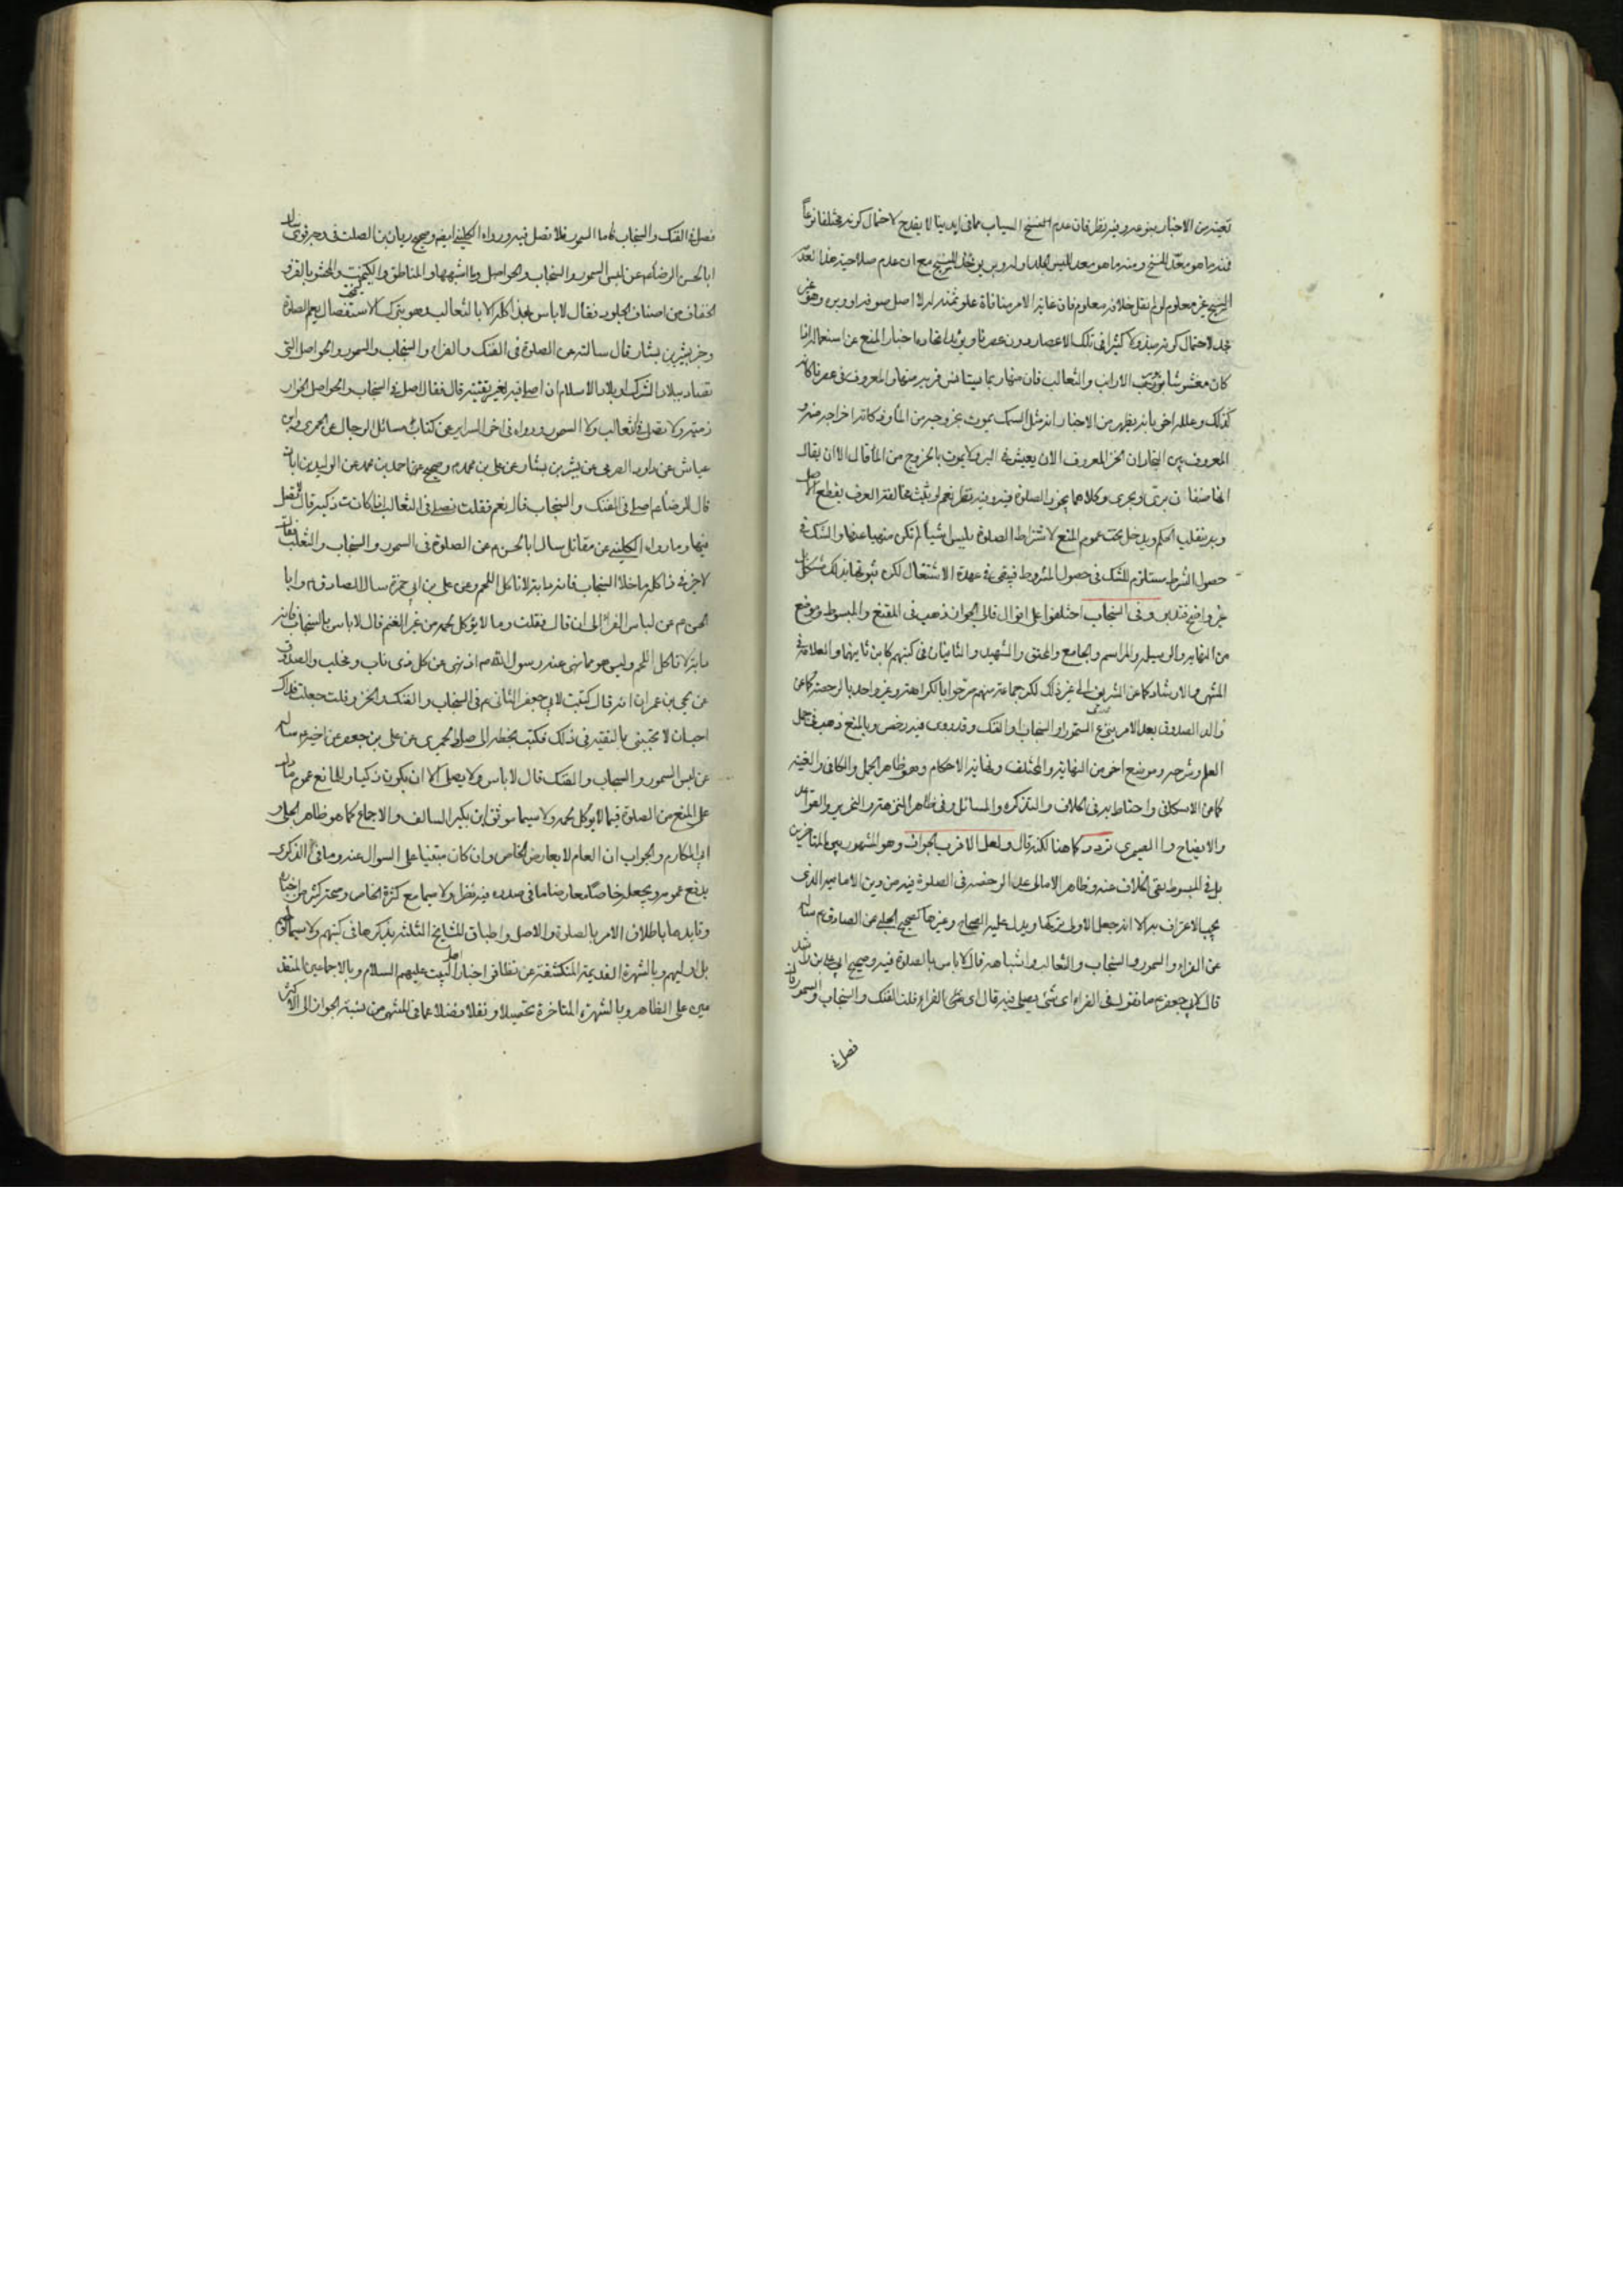 تعينه من الاخبار بنوعه وفيه نظر فان عدم النسج السياب مما في ايدينا لا يقدح لاحتمال كونه مختلفا نوعاً
فمنه ما هو معدّ للنسج ومنه ما هو معد للبس الجلد اوله وبر يؤخذ للنسج مع ان عدم صلاحية هذا بعدّ
النسج غير معلوم لو لم نقل خلافه معلوم فان غاية الامر منافاة علو ثمنه له لا اصل صوفه او وبره وهو غير
لاحتمال كونه مبذولا كثيرا في تلك الاعصار دون عصرنا ويؤيد اتحاده اخبار المنع عن استعماله اذا
كان مغشوشا بوبر الارانب والثعالب فان منهار بما يستانس قربه منها والمعروف في عصرنا كانه
كذلك وعلله اخر بانه يظهر من الاخبار انه مثل السمك يموت بخروجه من الماء وذكاته اخراجه منه و
المعروف بين التجار ان الخز المعروف الان يعيش في البر ولا يموت بالخروج من الماء قال الا ان يقال
انها صنفان بري وبحري وكلاهما يجوز الصلوة فيه وفيه نظر نعم لو يثبت مخالفة العرف يقطع الاصل
وبه ينقلب الحكم ويدخل تحت عموم المنع لاشتراط الصلوة بلبس اشياء لم تكن منهيا عنها والشك في
حصول الشرط يستلزم الشك في حصول المشروط فيبقى في عهدة الاشتغال لكن ثبوتها بذلك مشكل
غير واضح فتدبر وفي السنجاب اختلفوا على اقوال فالى الجواز ذهب في المقنع والمبسوط وموضع
من النهاية والوسيلة والمراسم والجامع والمحقق والشهيد والثانيان في كتبهم كابن ثانيهما والعلامة في
المنتهى والارشاد كما عن الشرايع الى غير ذلك لكن جماعة منهم صرحوا بالكراهة وغير واحد بالرخصة كما عن
والد الصدوق بعد الامر بنزع السمور والسنجاب والفنك وقد روى فيه رخص وبالمنع ذهب في جمل
العلم وشرحه وموضع اخر من النهاية والمختلف ونهاية الاحكام وهو ظاهر الجمل والكافي والغنية
كما عن الاسكافي واحتاط به في الخلاف والتذكرة والمسائل وفي ظاهر النزهة والتحرير والقواعد
والايضاح و الصيمري تردد كما هنا لكنه قال ولعل الاقرب الجواز وهو المشهور بين المتاخرين
بل في المبسوط نفي الخلاف عنه وظاهر الامالي عد الرخصة في الصلوة فيه من دين الامامية الذي
يجب الاعتراف به الا انه جعل الاولى تركها ويدل عليه الصحاح وغيرها كصحيح الحلبي عن الصادق م ساله
عن الفراء والسمور والسنجاب والثعالب واشباهه قال لا باس بالصلوة فيه وصحيح ابي علي بن راشد
قال لابي جعفر م ما تقول في الفراء اى شئ يصلى فيه قال اى الفراء قلت الفنك والسنجاب والسمور قال
فصل في
فصل في الفنك والسنجاب فاما السمور فلا تصل فيه ورواه الكليني ايضا وصحيح ريان بن الصلت في وجه قوى ساله
ابا الحسن الرضا م عن لبس السمور والسنجاب والحواصل وما اشبهها والمناطق والكيمخت والمحشو بالقز و
الخفاف من اصناف الجلود فقال لا باس بهذا كله الا بالثعالب وهو بترك الاستفصال يعم الصلوة
وخبر بشير بن بشار قال سالته عن الصلوة في الفنك والفراء والسنجاب والسمور والحواصل التي
تصاد ببلاد الشرك او بلاد الاسلام ان اصلي فيه لغير تقية قال فقال صل في السنجاب والحواصل الخوار
زمية ولا تصل في الثعالب ولا السمور ورواه في اخر السراير عن كتاب مسائل الرجال عن الحميري وابن
عياش عن داود الصرمي عن بشير بن بشار عن علي بن محمد م وصحيح عن احمد بن محمد عن الوليد بن ابان
قال للرضا م اصلي في الفنك والسنجاب قال نعم فقلت نصلي في الثعالب اذا كانت ذكية قال لا تصل
فيها وما رواه الكليني عن مقاتل سال ابا الحسن م عن الصلوة في السمور والسنجاب والثعلب فقال
لا خير في ذا كله ما خلا السنجاب فانه دابة لا تاكل اللحم وعن علي بن ابي حمزة سال الصادق م وابا
الحسن م عن لباس الفراء الى ان قال فقلت وما لا يؤكل لحمه من غير الغنم قال لا باس بالسنجاب فانه
دابة لا تاكل اللحم وليس هو مما نهى عنه رسول الله ص اذ نهى عن كل ذى ناب ومخلب والصدوق
عن يحيى بن عمران انه قال كتبت لابي جعفر الثاني م في السنجاب والفنك والخز وقلت جعلت فداك
احب ان لا تجيبني بالتقية في ذلك فكتب بخطه الى صل فيها والحميري عن علي بن جعفر عن اخيه م ساله
عن لبس السمور والسنجاب والفنك قال لا باس ولا يصلى الا ان يكون ذكيا وللمانع عموم ما دل
على المنع من الصلوة فيما لا يؤكل لحمه ولا سيما موثق ابن بكير السالف والاجماع كما هو ظاهر الحلي و
ابي المكارم والجواب ان العام لا يعارض الخاص وان كان مبتنيا على السؤال عنه وما في الذكرى
يدفع عمومه ويجعل خاصا معارضا ما في صدره فيه نظر ولا سيما مع كثرة الخاص وصحة كثير من اخباره
وتايدها باطلاق الامر بالصلوة والاصل واطباق المشايخ الثلثة بذكرها في كتبهم ولا سيما
بل اوليهم وبالشهرة القديمة المنكشفة عن تظافر اخبار اهل البيت عليهم السلام وبالاجماعين المتقد
مين على الظاهر وبالشهرة المتاخرة تحصيلا ونقلا فضلا عما في المنتهى من نسبة الجواز الى الاكثر